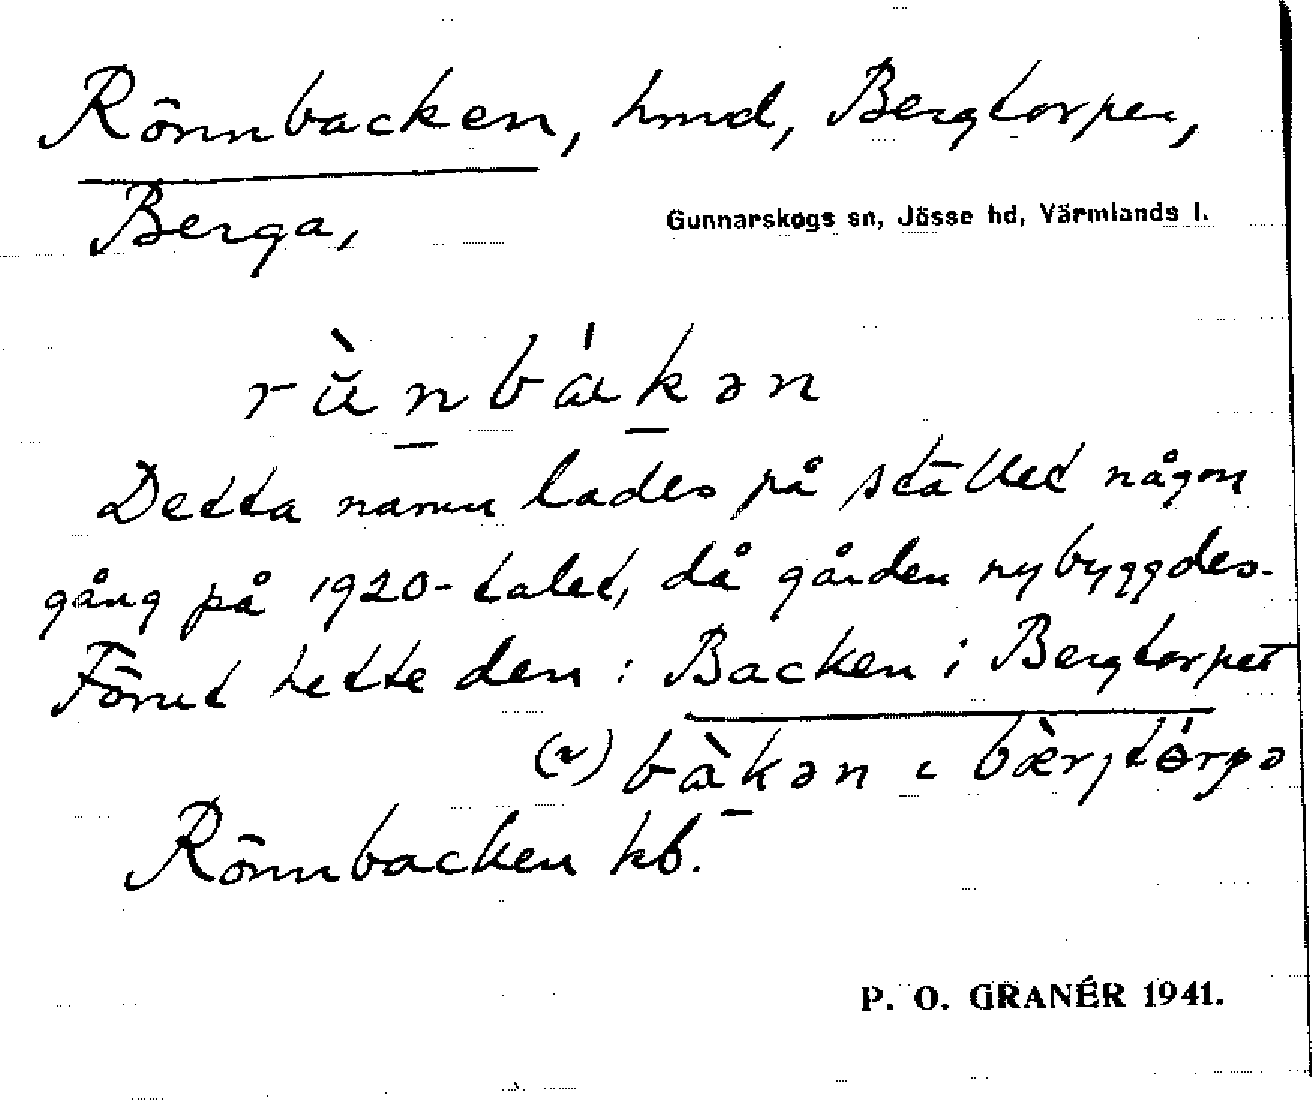 Rönnbacken, hmd, Bergtorpen,
Berga,
Gunnarskogs sn, Jösse hd, Värmlands l.
rùnbákən
Detta namn lades på stället någon
gång på 1920-talet, då gården nybyggdes.
Förut hette den: Backen i Bergtorpet
(~) bàkən ɩ bærjtórpə
Rönnbacken kb.
P. O. GRANÉR 1941.